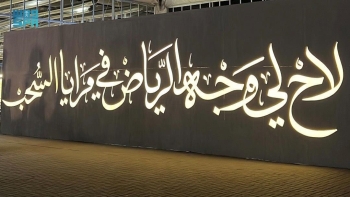 لاح لي وجه الرياض في مرايا السُّحب